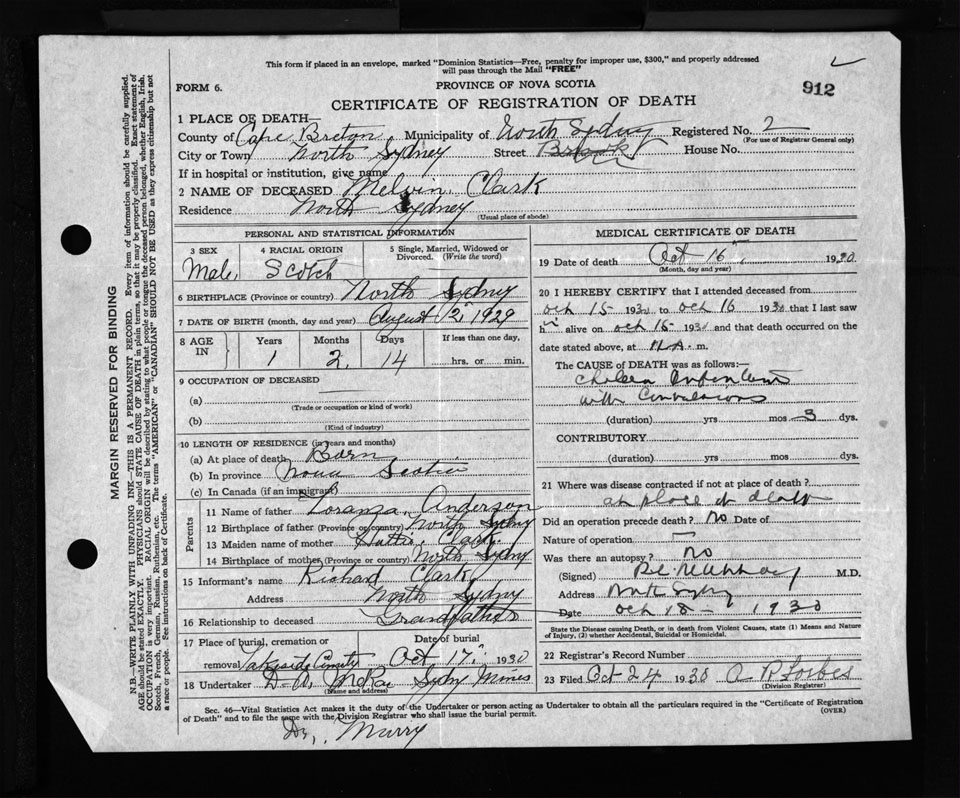 This form if placed in an envelope, marked "Dominion Statistics—Free, penalty for improper use, $300," and properly addressed
will pass through the Mail "FREE"
FORM 6.
PROVINCE OF NOVA SCOTIA
912
CERTIFICATE OF REGISTRATION OF DEATH
1 PLACE OF DEATH
County of Cape Breton Municipality of North Sydney Registered No. 2
(For use of Registrar General only)
City or Town North Sydney Street House No.
If in hospital or institution, give name
2 NAME OF DECEASED Melvin Clark
Residence North Sydney
(Usual place of abode)
PERSONAL AND STATISTICAL INFORMATION
3 SEX 4 RACIAL ORIGIN 5 Single, Married, Widowed or Divorced. (Write the word)
Male Scotch
6 BIRTHPLACE (Province or country) North Sydney
7 DATE OF BIRTH (month, day and year) August 2 1929
8 AGE IN Years Months Days If less than one day,
1 2 14 hrs. or min.
9 OCCUPATION OF DECEASED
(a)
(Trade or occupation or kind of work)
(b)
(Kind of industry)
10 LENGTH OF RESIDENCE (in years and months)
(a) At place of death Born
(b) In province Nova Scotia
(c) In Canada (if an immigrant)
Parents
11 Name of father Anderson
12 Birthplace of father (Province or country) North Sydney
13 Maiden name of mother Hattie Clark
14 Birthplace of mother (Province or country) North Sydney
15 Informant's name Richard Clark
Address North Sydney
16 Relationship to deceased Grandfather
17 Place of burial, cremation or Date of burial
removal Lakeside Oct 17 1930
18 Undertaker D. A. McKay Sydney Mines
(Name and address)
MEDICAL CERTIFICATE OF DEATH
19 Date of death Oct 16 1930.
(Month, day and year)
20 I HEREBY CERTIFY that I attended deceased from
Oct 15 1930 to Oct 16 1930 that I last saw
him alive on Oct 15 1930 and that death occurred on the
date stated above, at m.
The CAUSE of DEATH was as follows:
Cholera Infantum
with Convulsions
(duration) yrs mos 3 dys.
CONTRIBUTORY
(duration) yrs mos dys.
21 Where was disease contracted if not at place of death?
at place of death
Did an operation precede death? no Date of
Nature of operation
Was there an autopsy? no
(Signed) M.D.
Address North Sydney
Date Oct 18 1930
State the Disease causing Death, or in death from Violent Causes, state (1) Means and Nature
of Injury, (2) whether Accidental, Suicidal or Homicidal.
22 Registrar's Record Number
23 Filed Oct 24 1930 A P Forbes
(Division Registrar)
Sec. 46—Vital Statistics Act makes it the duty of the Undertaker or person acting as Undertaker to obtain all the particulars required in the "Certificate of Registration
of Death" and to file the same with the Division Registrar who shall issue the burial permit. (OVER)
Dr. Murry
MARGIN RESERVED FOR BINDING
N.B.—WRITE PLAINLY WITH UNFADING INK—THIS IS A PERMANENT RECORD. Every item of information should be carefully supplied.
AGE should be stated EXACTLY. PHYSICIANS should STATE CAUSE OF DEATH in plain terms, so that it may be properly classified. Exact statement of
OCCUPATION is very important. RACIAL ORIGIN will be described by stating to what people or tongue the deceased person belonged, whether English, Irish,
Scotch, French, German, Russian, Ruthenian, etc. The terms "AMERICAN" or "CANADIAN" SHOULD NOT BE USED as they express citizenship but not
a race or people. See instructions on back of Certificate.